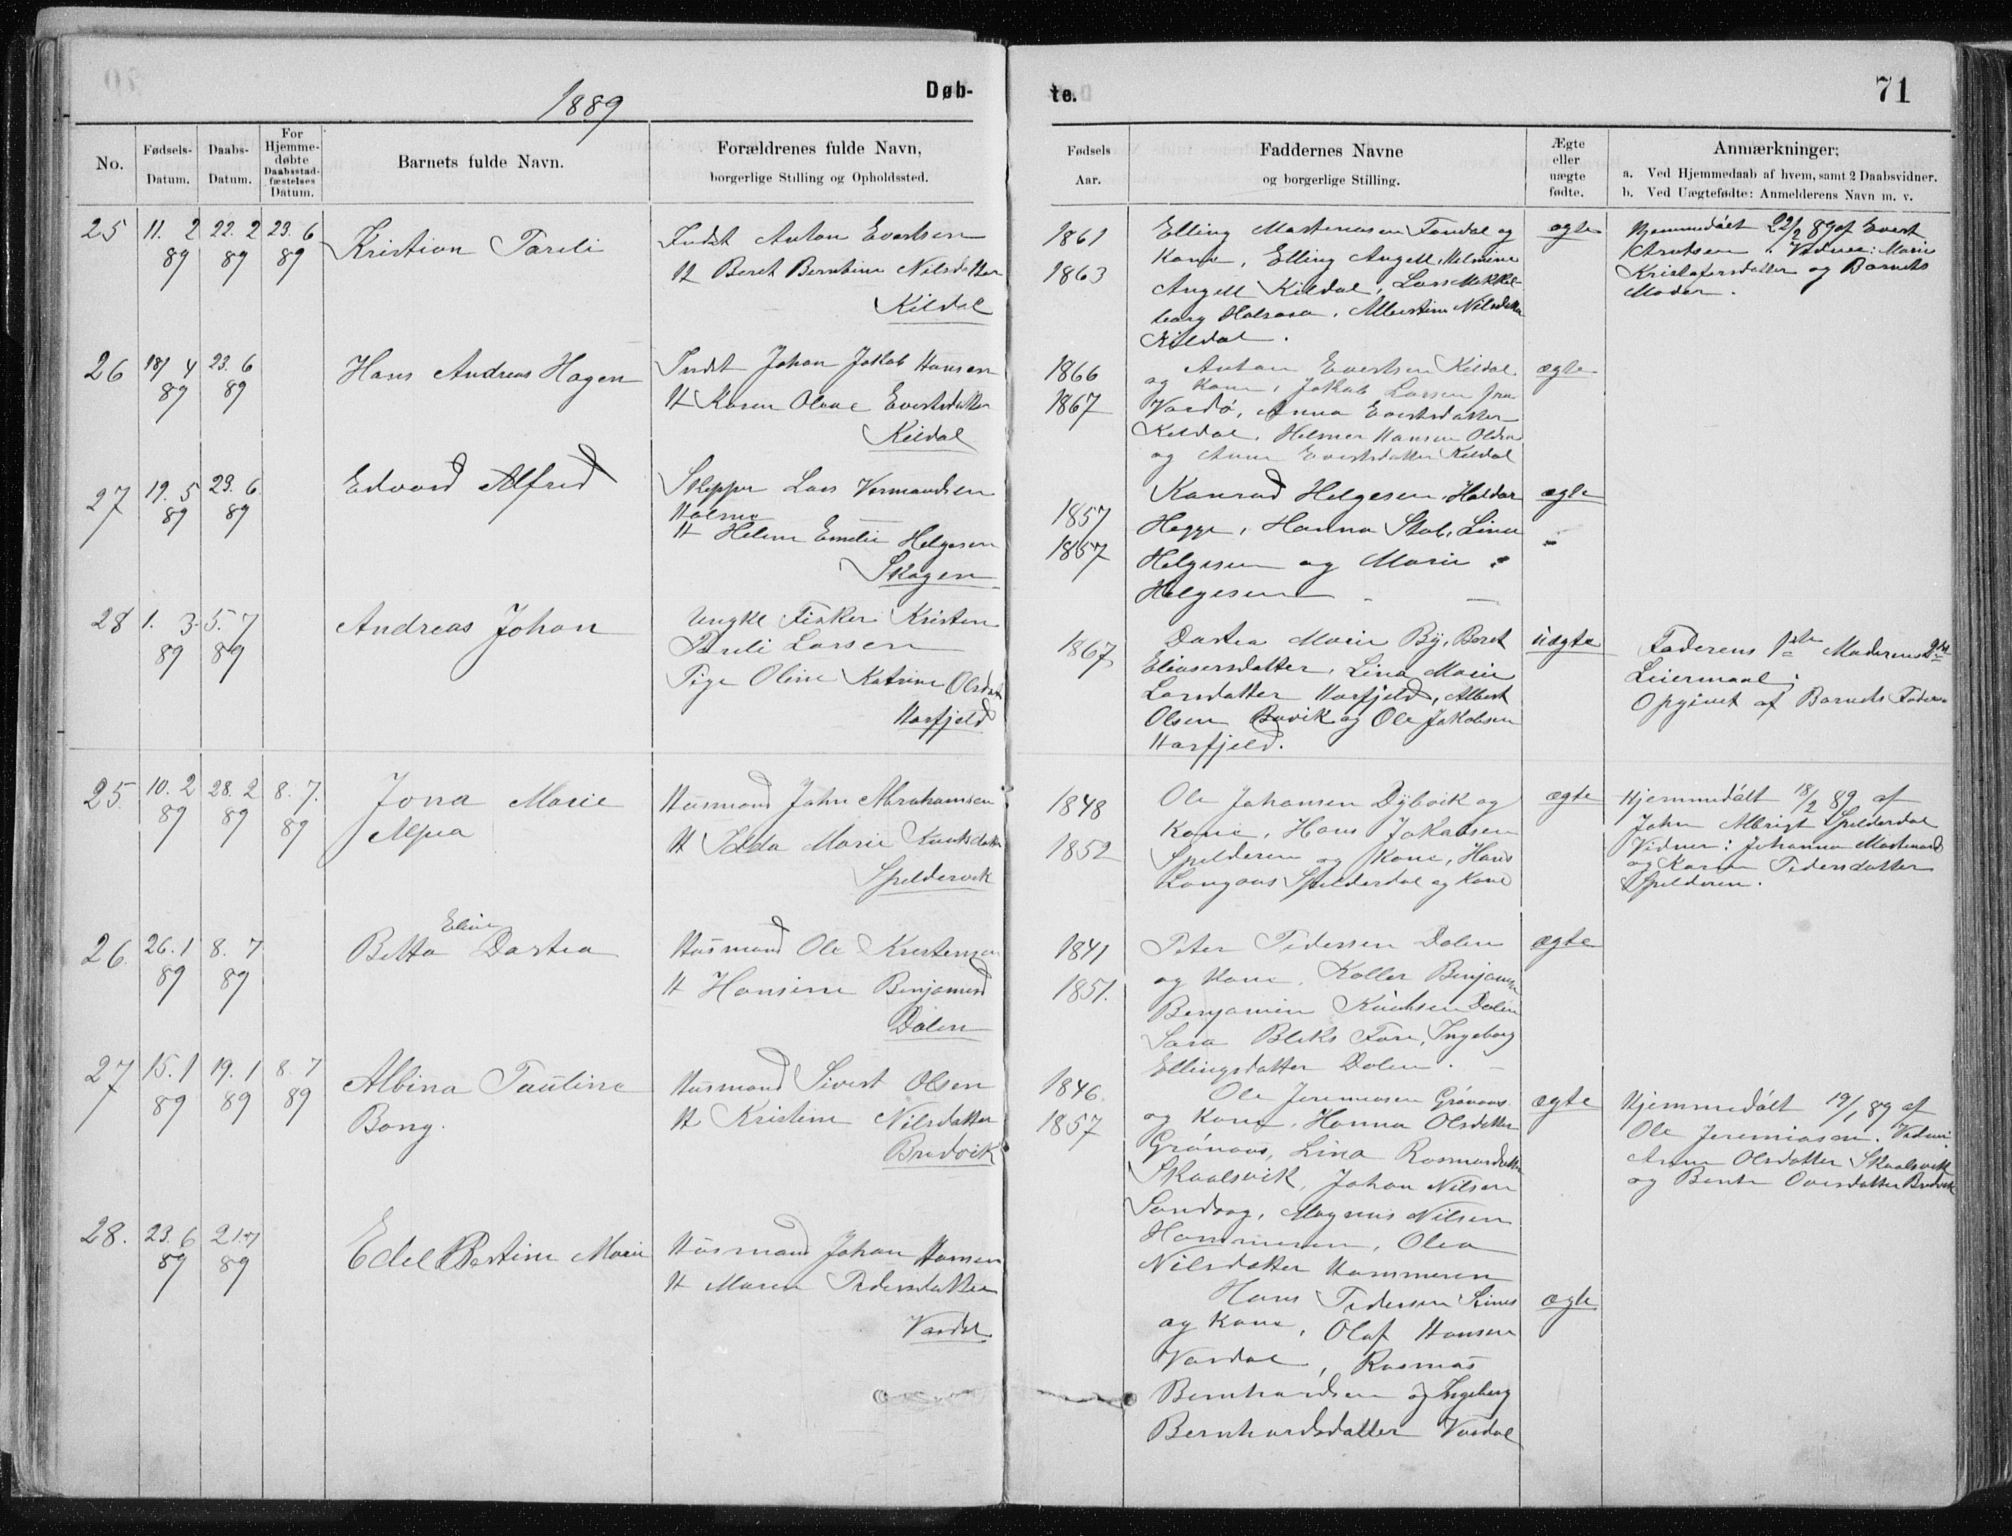 1889
Døb-
te.
71
No.
Fødsels-
Datum.
Daabs-
Datum.
For
Hjemme-
døbte
Daabsstad-
fæstelses
Datum.
Barnets fulde Navn.
Forældrenes fulde Navn,
borgerlige Stilling og Opholdssted.
Fødsels
Aar.
Faddernes Navne
og borgerlige Stilling.
Ægte
eller
uægte
fødte.
Anmærkninger;
a. Ved Hjemmedaab af hvem, samt 2 Daabsvidner.
b. Ved Uægtefødte: Anmelderens Navn m. v.
25 11. 2 22. 2 23. 6
89 89 89
Kristian Pareli
Indst Anton Evertsen
H Beret Berntine Nilsdatter
Kildal
1861
1863
Elling Mortenssen Fondal og
Kone, Elling Angell, Helmine
Angell Kildal, Lars Mekkel-
borg Halsosa, Albertine Nilsdatter
Kildal.
ægte
Hjemmedøbt 22/2 89 af Evert
Arntsen. Vidner: Marie
Kristofersdatter og Barnets
Moder.
26 18/ 4 23. 6
89 89
Hans Andreas Hagen
Indst Johan Jakob Hansen
H Karen Olava Evertsdatter
Kildal
1866
1867
Anton Evertsen Kildal
og Kone, Jakob Larsen fra
Vardø, Anna Evertsdatter
Kildal, Helmer Hansen Oldra
og Anne Evertsdatter Kildal
ægte
27 19. 5 23. 6
89 89
Edvard Alfred
Skipper Lars Vermundsen
Holmo
H Helene Emelie Helgesen
Skogen
1857
1857
Konrad Helgesen, Haldor
Hegge, Hanna Stab, Lina
Helgesen og Marie
Helgesen
ægte
28 1. 3 5. 7
89 89
Andreas Johan
Ungkl Fisker Kristen
Pareli Larsen
Pige Oline Katrine Olsdatter
Harfjeld
1867
Dortea Marie By, Beret
Eliasersdatter, Lina Marie
Larsdatter Harfjeld, Albert
Olsen Buvik og Ole Jakobsen
Harfjeld.
uægte
Faderens 1ste Moderens 2det
Leiermaal;
Opgivet af Barnets Fader
25. 10. 2 28. 2 8. 7.
89 89 89
Jona Marie
Alpea
Husmand John Abrahamsen
H Ida Marie Knutsdatter
Spildervik
1848
1852
Ole Johansen Dybvik og
Kone, Hans Jakobsen
Spilderen og Kone, Hans
Langaas Spilderdal og Kone
ægte
Hjemmedøbt 18/2 89 af
John Albrigt Spilderdal
Vidner: Johanna Mortensd
og Karen Pedersdatter
Spilderen.
26. 26. 1 8. 7
89 89
Eline
Betta Dortea
Husmand Ole Kristensen
H Hansine Benjaminsd
Dalen
1841
1851.
Peter Pedersen Dalen
og Kone, Koller Benjamin
Benjamin Knudsen Dalen
Sara Bleks Fore, Ingeborg
Ellingsdatter Dalen.
ægte
27 15. 1 19. 1 8. 7
89 89 89
Albina Pauline
Borg.
Husmand Sivert Olsen
H Kristine Nilsdatter
Bredvik
1846.
1857
Ole Jeremiasen Grønaas
og Kone, Hanna Olsdatter
Grønaas, Lina Rasmusdatter
Skaalsvik, Johan Nilsen
Sandvag, Magnus Nilsen
Hammeren, Olea
Nilsdatter Hammeren
ægte
Hjemmedøbt 19/1 89 af
Ole Jeremiasen. Vidner
Anna Olsdatter Skaalsvik
og Bente Ovesdatter Bredvik
28. 23. 6 21. 7
89 89
Edel Bertine Marie
Husmand Johan Hansen
H Maren Pedersdatter
Vasdal
Hans Pedersen
og Kone, Olaf Hansen
Vasdal, Rasmus
Bernhardsen og Ingeborg
Bernhardsdatter Vasdal
ægte